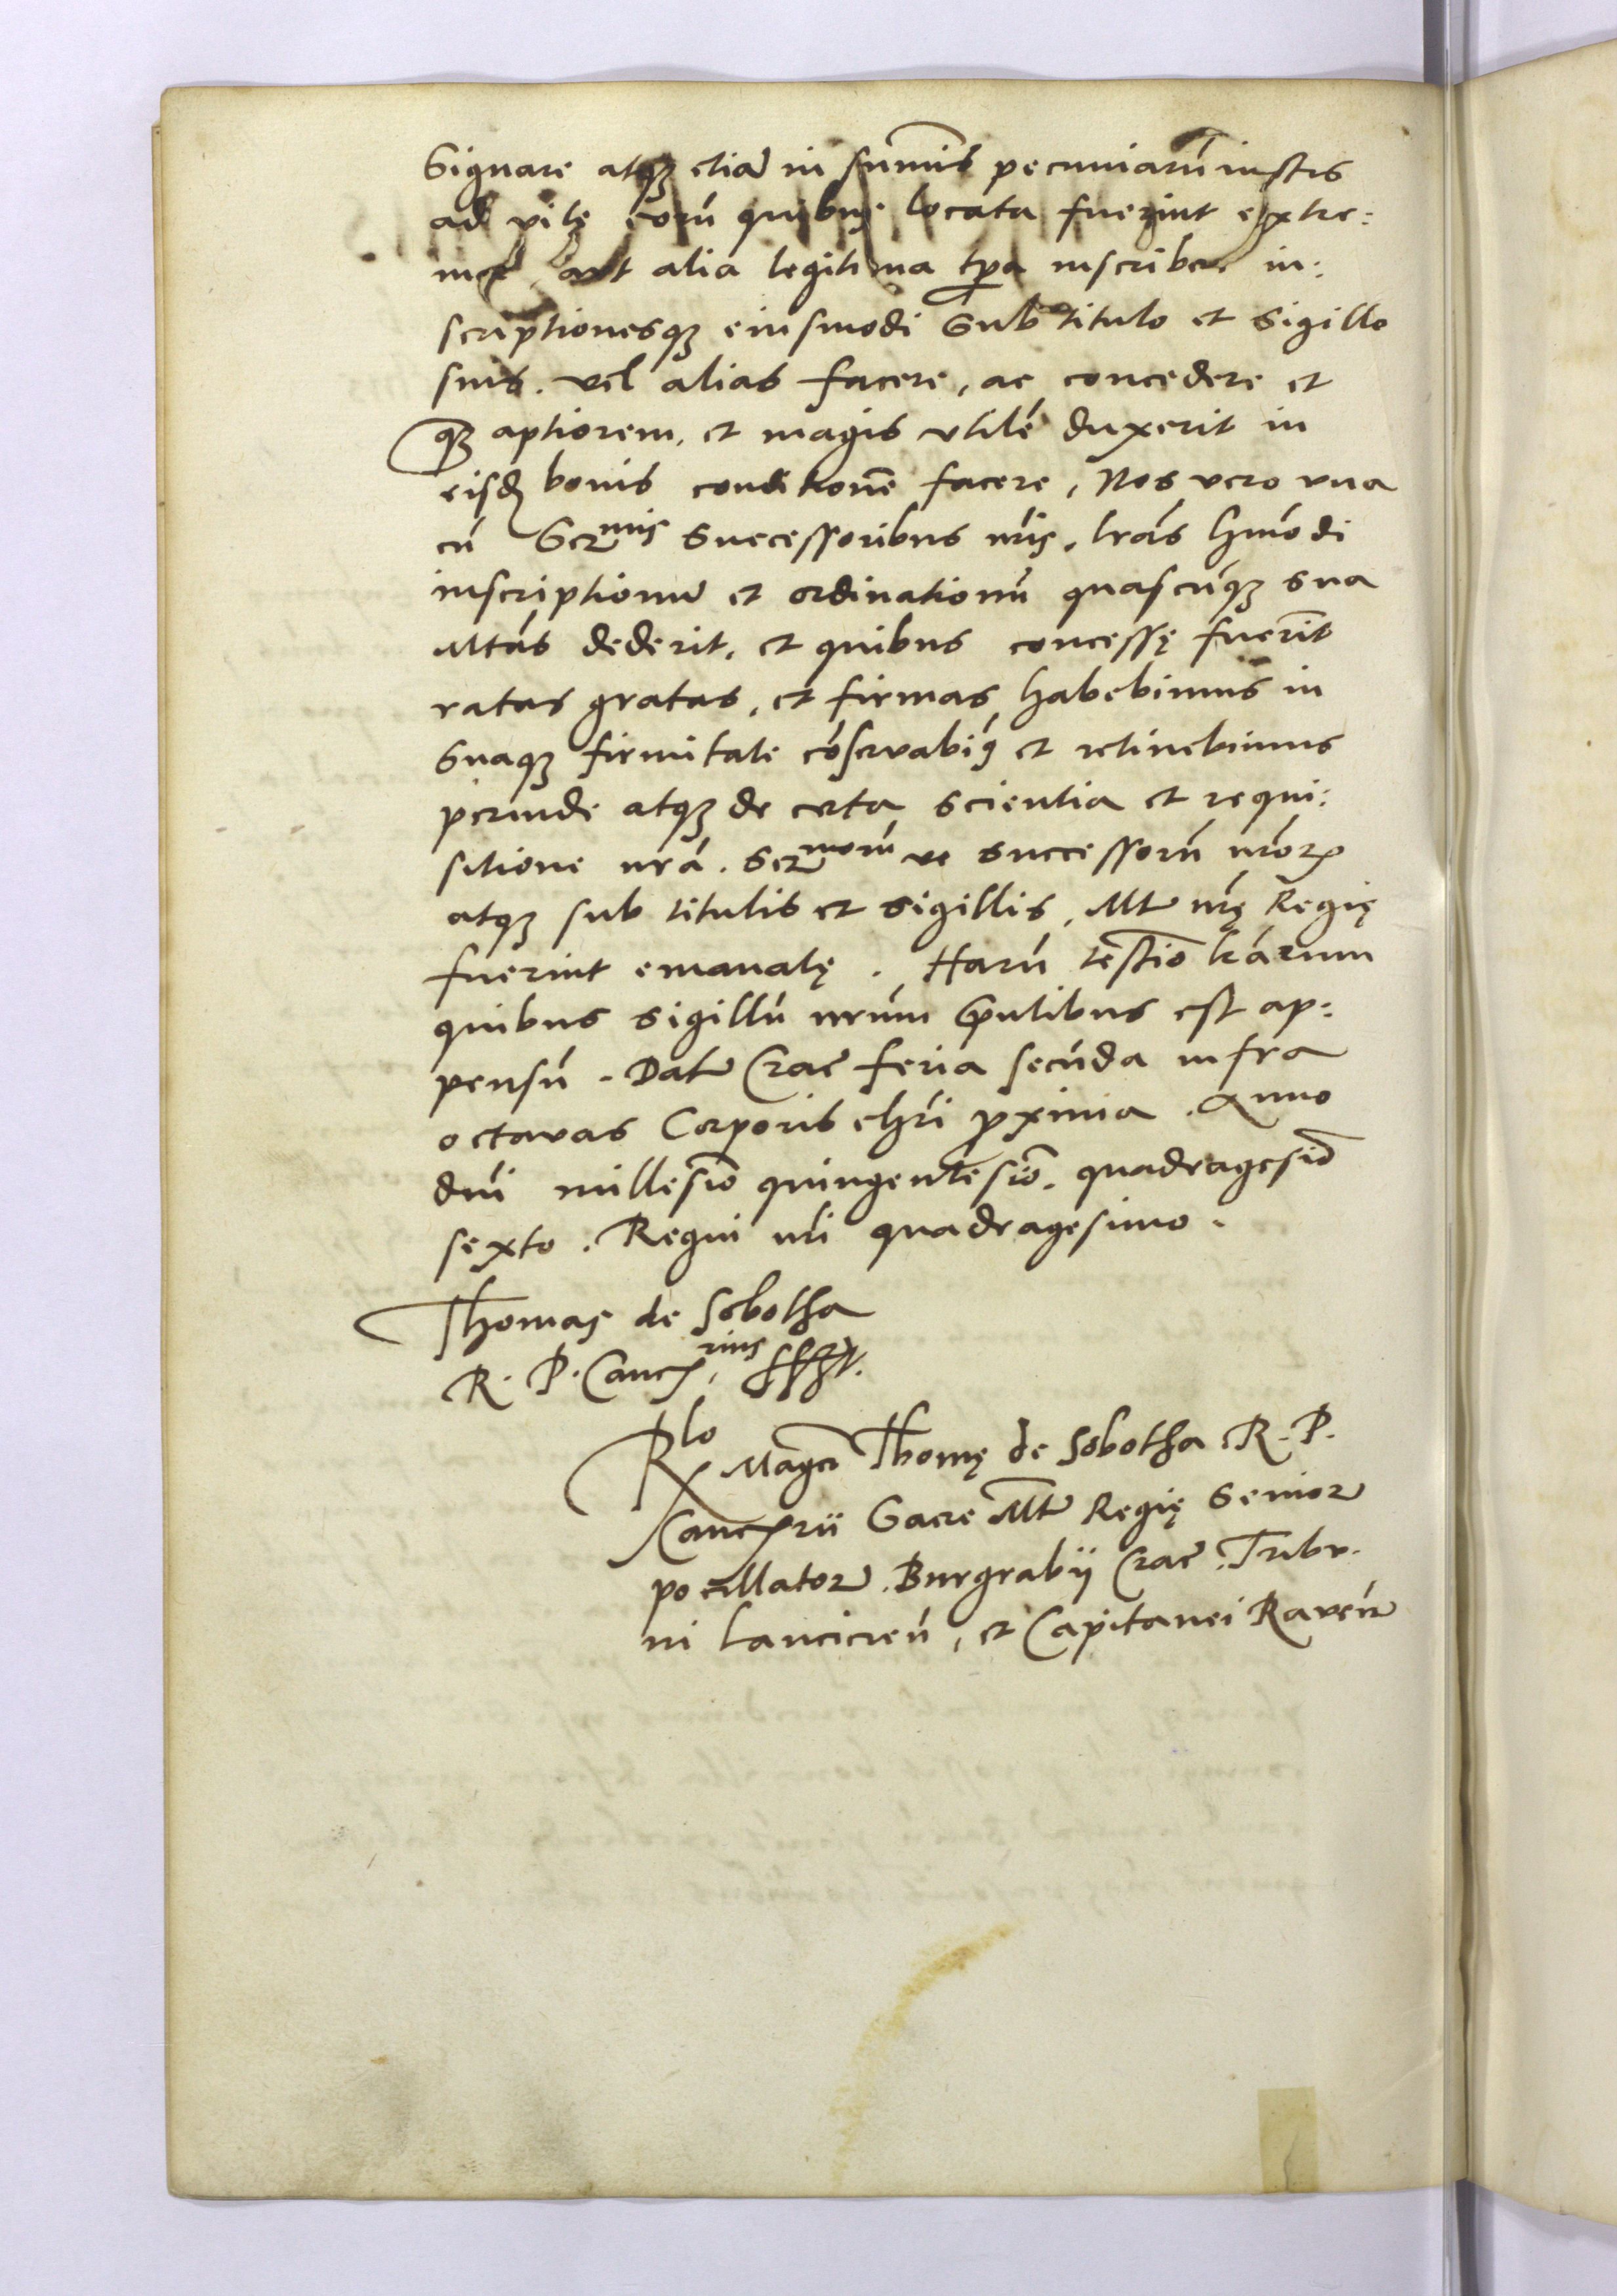 Signare atq[ue] etiā in sum̄is pecuniarū iustis
ad vitę eorū quibus locata fuerint extre:
ma, aut alia legitima tp̄a inscribere in:
scriptionesq[ue] eiusmodi Sub titulo et sigillo
suis. vel alias facere, ac concedere et
q[uam] aptiorem, et magis utilē duxerit in
eisd[em] bonis conditionē facere, Nos vero vna
cū Ser^mis Successoribus nris, lrās hmōdi
inscriptionū et ordinationū quascūq[ue] sua
Mtās dederit, et quibus concessę fuerīt
ratas gratas, et firmas habebimus in
Suaq[ue] firmitate cōservabim[us] et retinebimus
perinde atq[ue] de certa scientia et requi:
sitione nrā. Ser^morū ve successorū nrōr[um]
atq[ue] sub titulis et sigillis, Mt nrę Regię
fuerint emanatę. Harū testīo lrārum
quibus sigillū nrum p̄ntibus est ap:
pensū. Dat Crac feria secūda infra
octavas Corporis chrī proxima. Anno
dnī millesīo quingentesīo. quadragesīo
sexto. Regni nrī quadragesimo.
Thomas de Sobotha
R. P. Canc^rius sszt.
R^lo Magcī Thomę de Sobotha R. P.
Cancrii Sacre Mt Regię Senior
pocillator. Burgrabij Crac. Tribu.
ni Lanciciēn, et Capitanei Ravēn